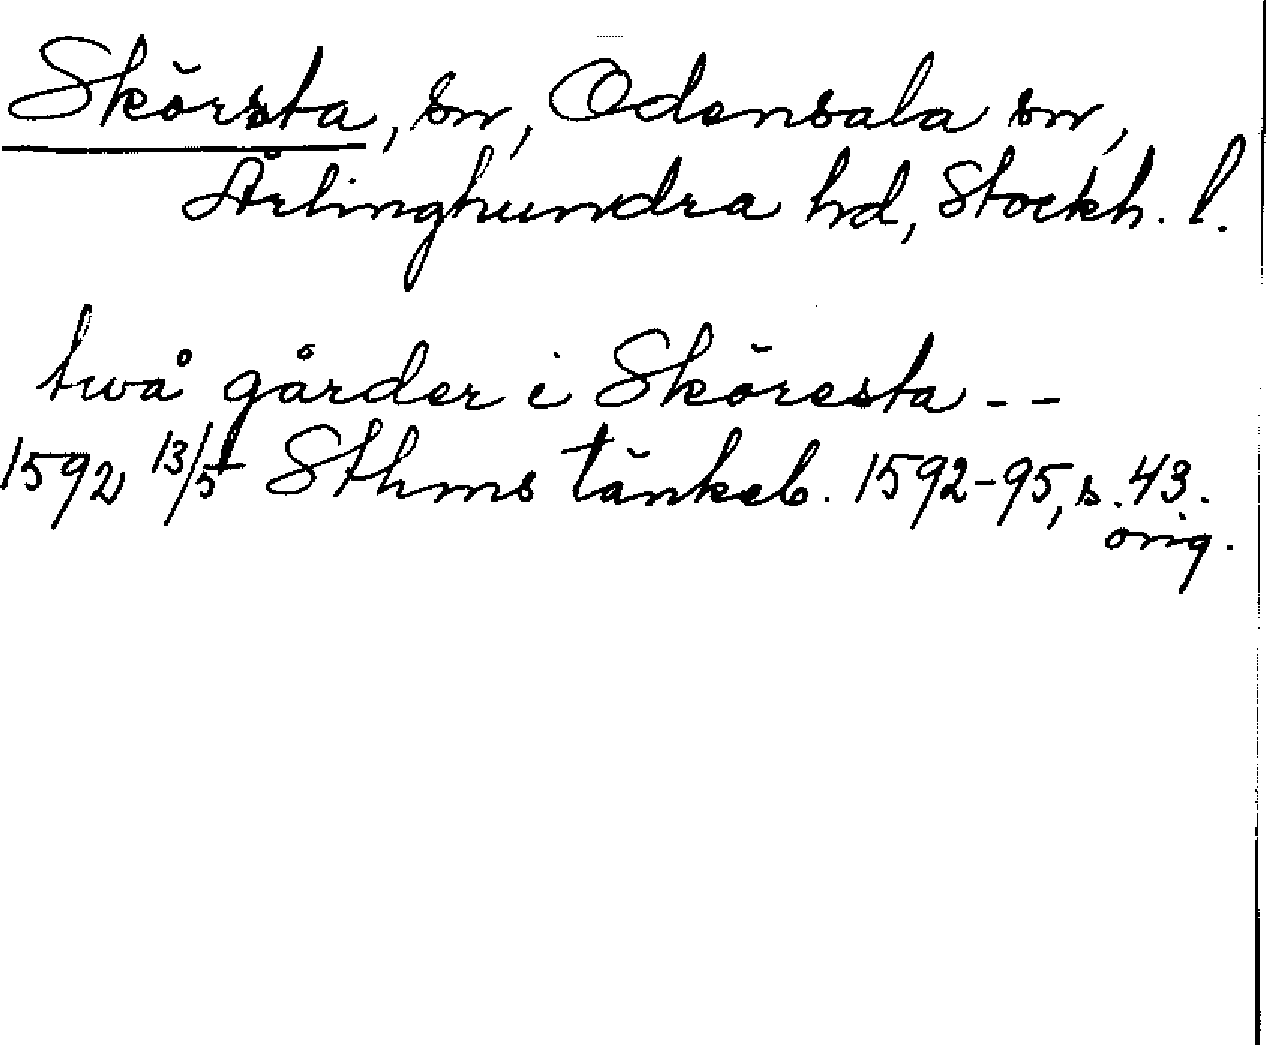 Skörsta, sn, Odensala sn,
Ärlinghundra hd, Stockh. l.
twå gårder i Sköresta --
1592 13/5 Sthms tänkeb. 1592-95, s. 43.
orig.